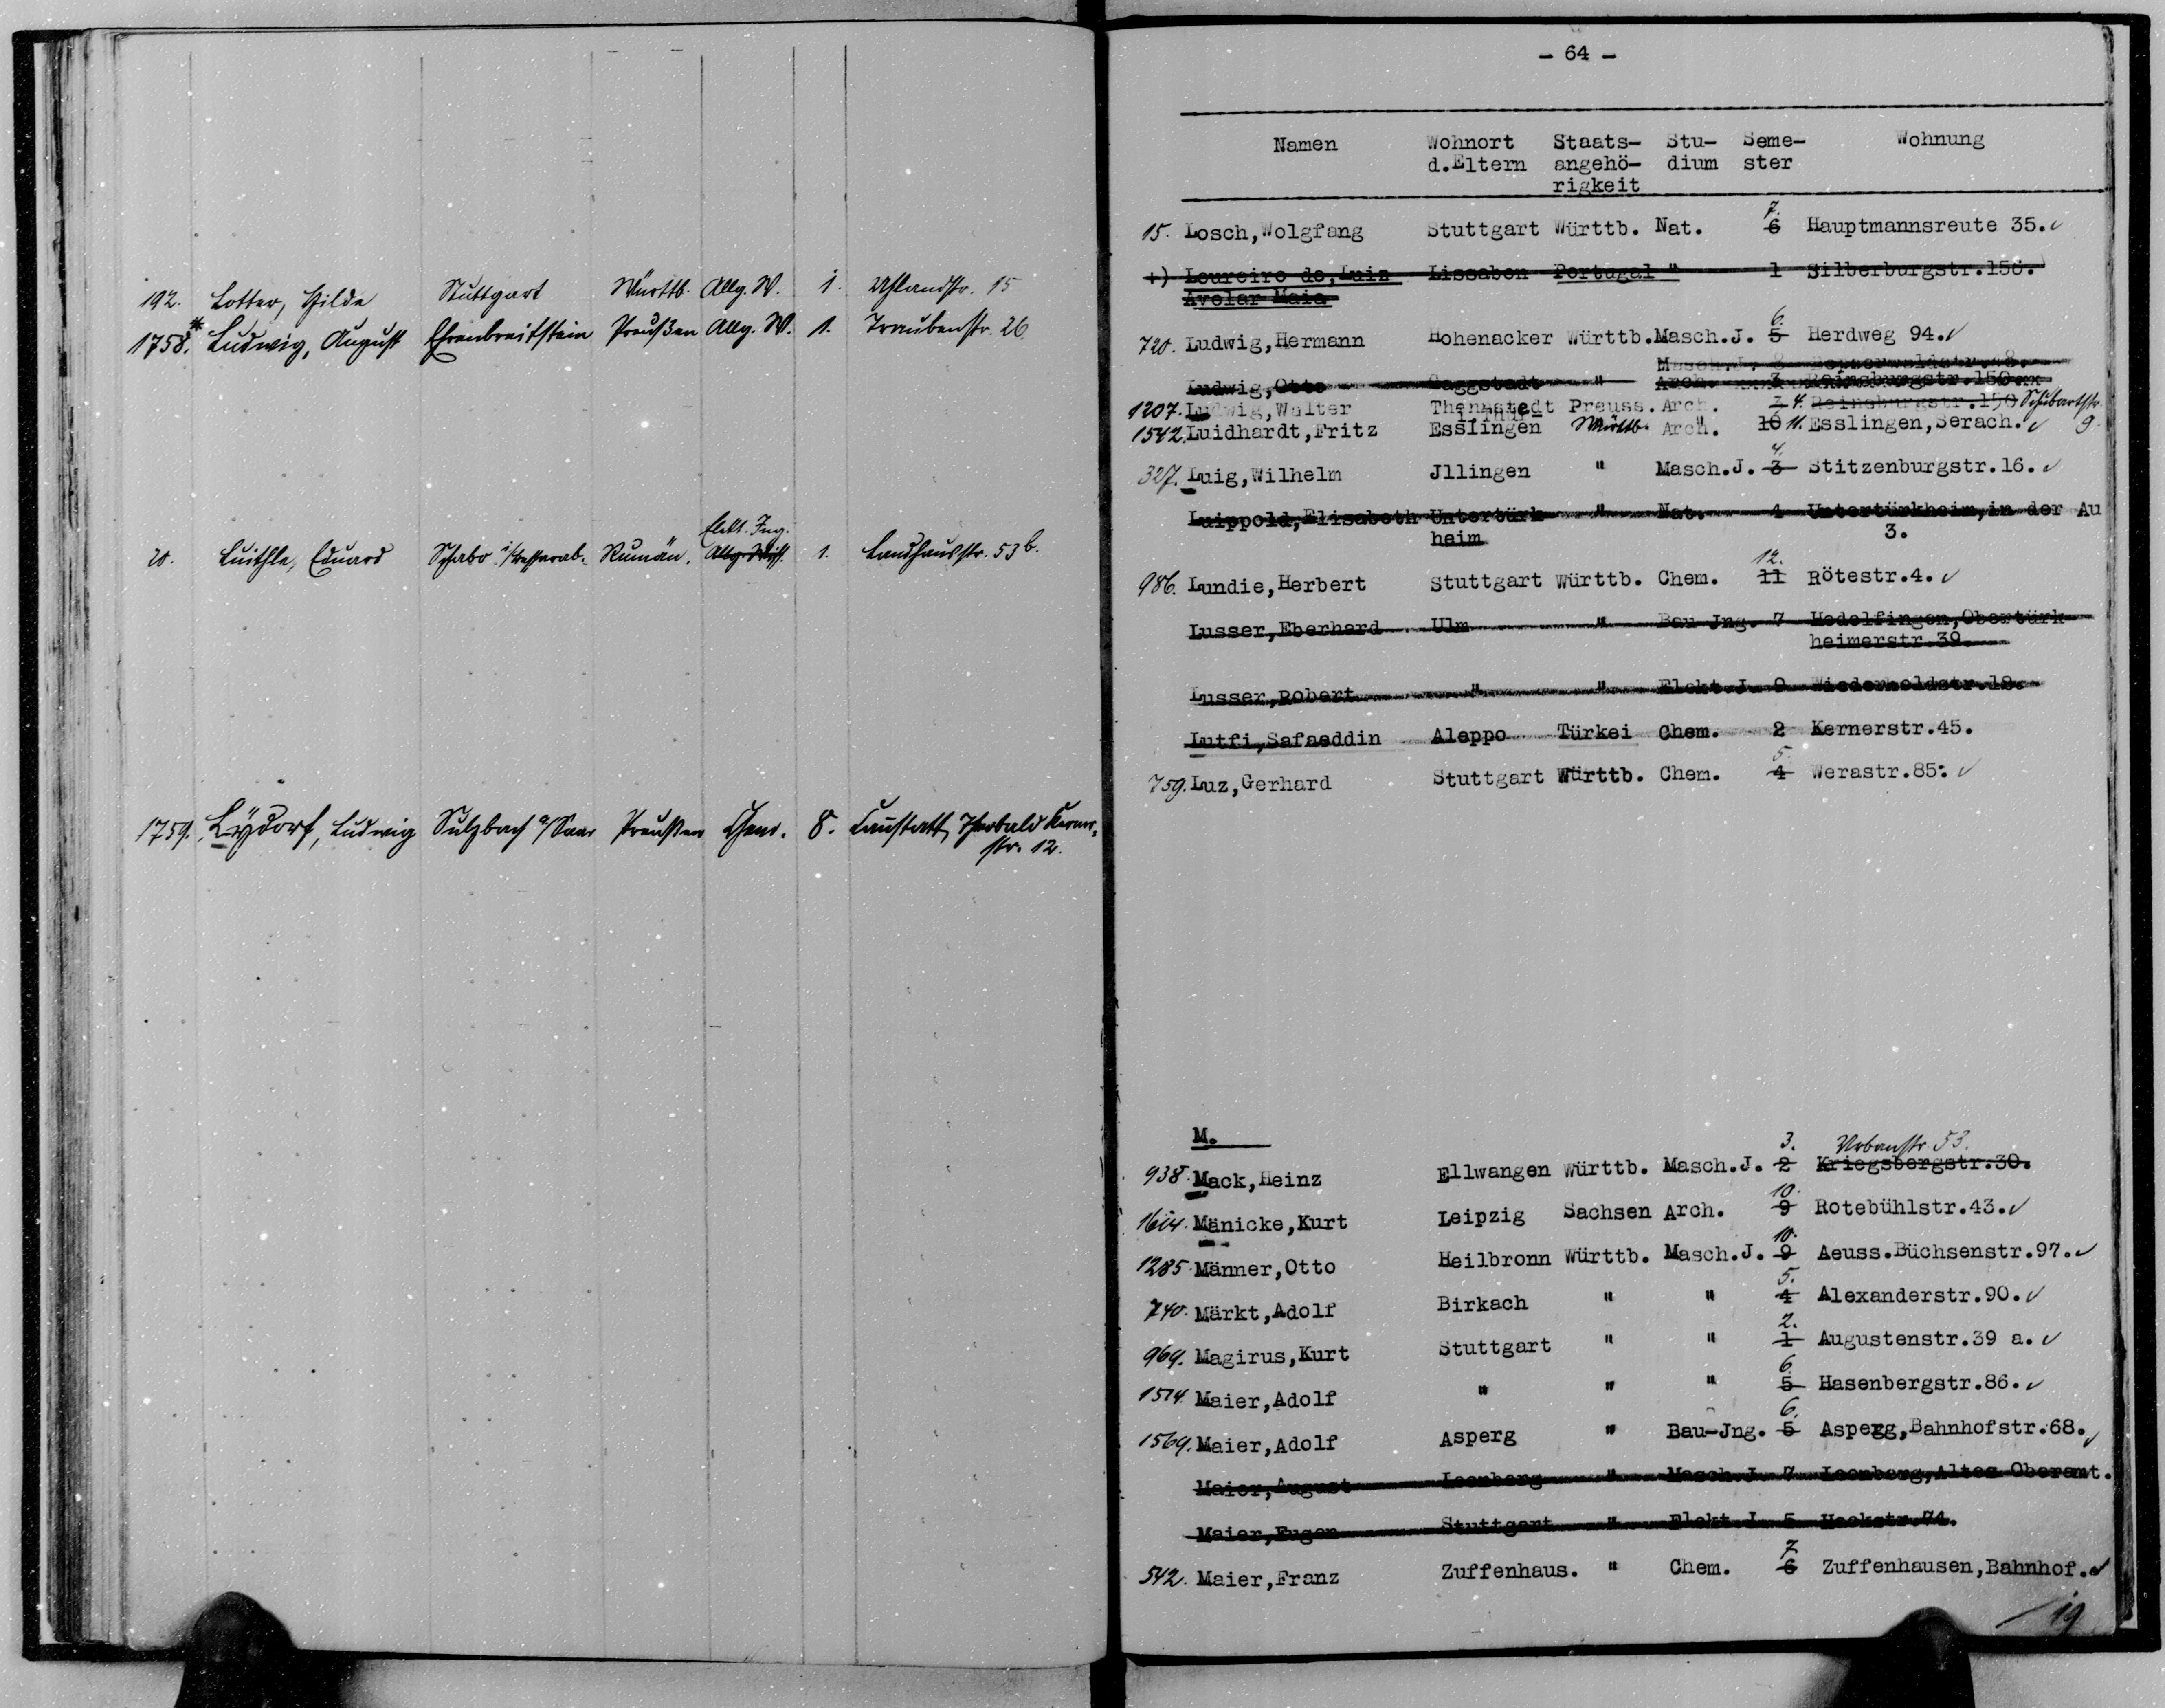 192. Lotter, Hilde Stuttgart Württb. Allg. W. 1. Uhlandstr. 15
1758.* Ludwig, August Ehrenbreitstein Preußen Allg. W. 1. Traubenstr. 26.
Elekt. Ing.
20. Luithle, Eduard Schabo i/Bessarab. Rumän. Allg. Wiss. 1. Landhausstr. 53 b.
1759. Lydorf, Ludwig Sulzbach a/Saar Preußen Chem. 8. Cannstatt, Theobald Kerner-
str. 12.
- 64 -
Namen Wohnort Staats- Stu- Seme- Wohnung
d.Eltern angehö- dium ster
rigkeit
7.
15. Losch,Wolgfang Stuttgart Württb. Nat. 6 Hauptmannsreute 35.
+) Loureiro de,Luiz Lissabon Portugal " 1 Silberburgstr.156.
Avelar Maia
6.
720. Ludwig,Hermann Hohenacker Württb.Masch.J. 5 Herdweg 94.
Masch.J. 8
Ludwig,Otto Gaggstadt " Arch. 3 Reinsburgstr.150
1207. Ludwig,Walter Thennstedt Preuss. Arch. 3 4. Reinsburgstr.150 Schubartstr.
1542. Luidhardt,Fritz Esslingen Württb. Arch. 10 11. Esslingen,Serach. 9
4.
327. Luig,Wilhelm Jllingen " Masch.J. 3 Stitzenburgstr.16.
Luippold,Elisabeth Untertürk- " Nat. 4 Untertürkheim,in der Au
heim 3.
12.
986. Lundie,Herbert Stuttgart Württb. Chem. 11 Rötestr.4.
Lusser,Eberhard Ulm " Bau Jng. 7 Hedelfingen,Obertürk-
heimerstr.39.
Lusser,Robert " " Elekt.J. 9 Wiederholdstr.18.
Lutfi,Safaeddin Aleppo Türkei Chem. 2 Kernerstr.45.
5.
759. Luz,Gerhard Stuttgart Württb. Chem. 4 Werastr.85.
M.
3. Urbanstr. 53.
938. Mack,Heinz Ellwangen Württb. Masch.J. 2 Kriegsbergstr.30.
10.
1614. Mänicke,Kurt Leipzig Sachsen Arch. 9 Rotebühlstr.43.
10.
1285 Männer,Otto Heilbronn Württb. Masch.J. 9 Aeuss.Büchsenstr.97.
5.
740. Märkt,Adolf Birkach " " 4 Alexanderstr.90.
2.
969. Magirus,Kurt Stuttgart " " 1 Augustenstr.39 a.
6.
1514. Maier,Adolf " " " 5 Hasenbergstr.86.
6.
1569. Maier,Adolf Asperg " Bau-Jng. 5 Asperg,Bahnhofstr.68.
Maier,August Leonberg " Masch.J. 7 Leonberg,Altes Oberamt.
Maier,Eugen Stuttgart " Elekt.J. 5 Hackstr.74.
7.
542. Maier,Franz Zuffenhaus. " Chem. 6 Zuffenhausen,Bahnhof.
19